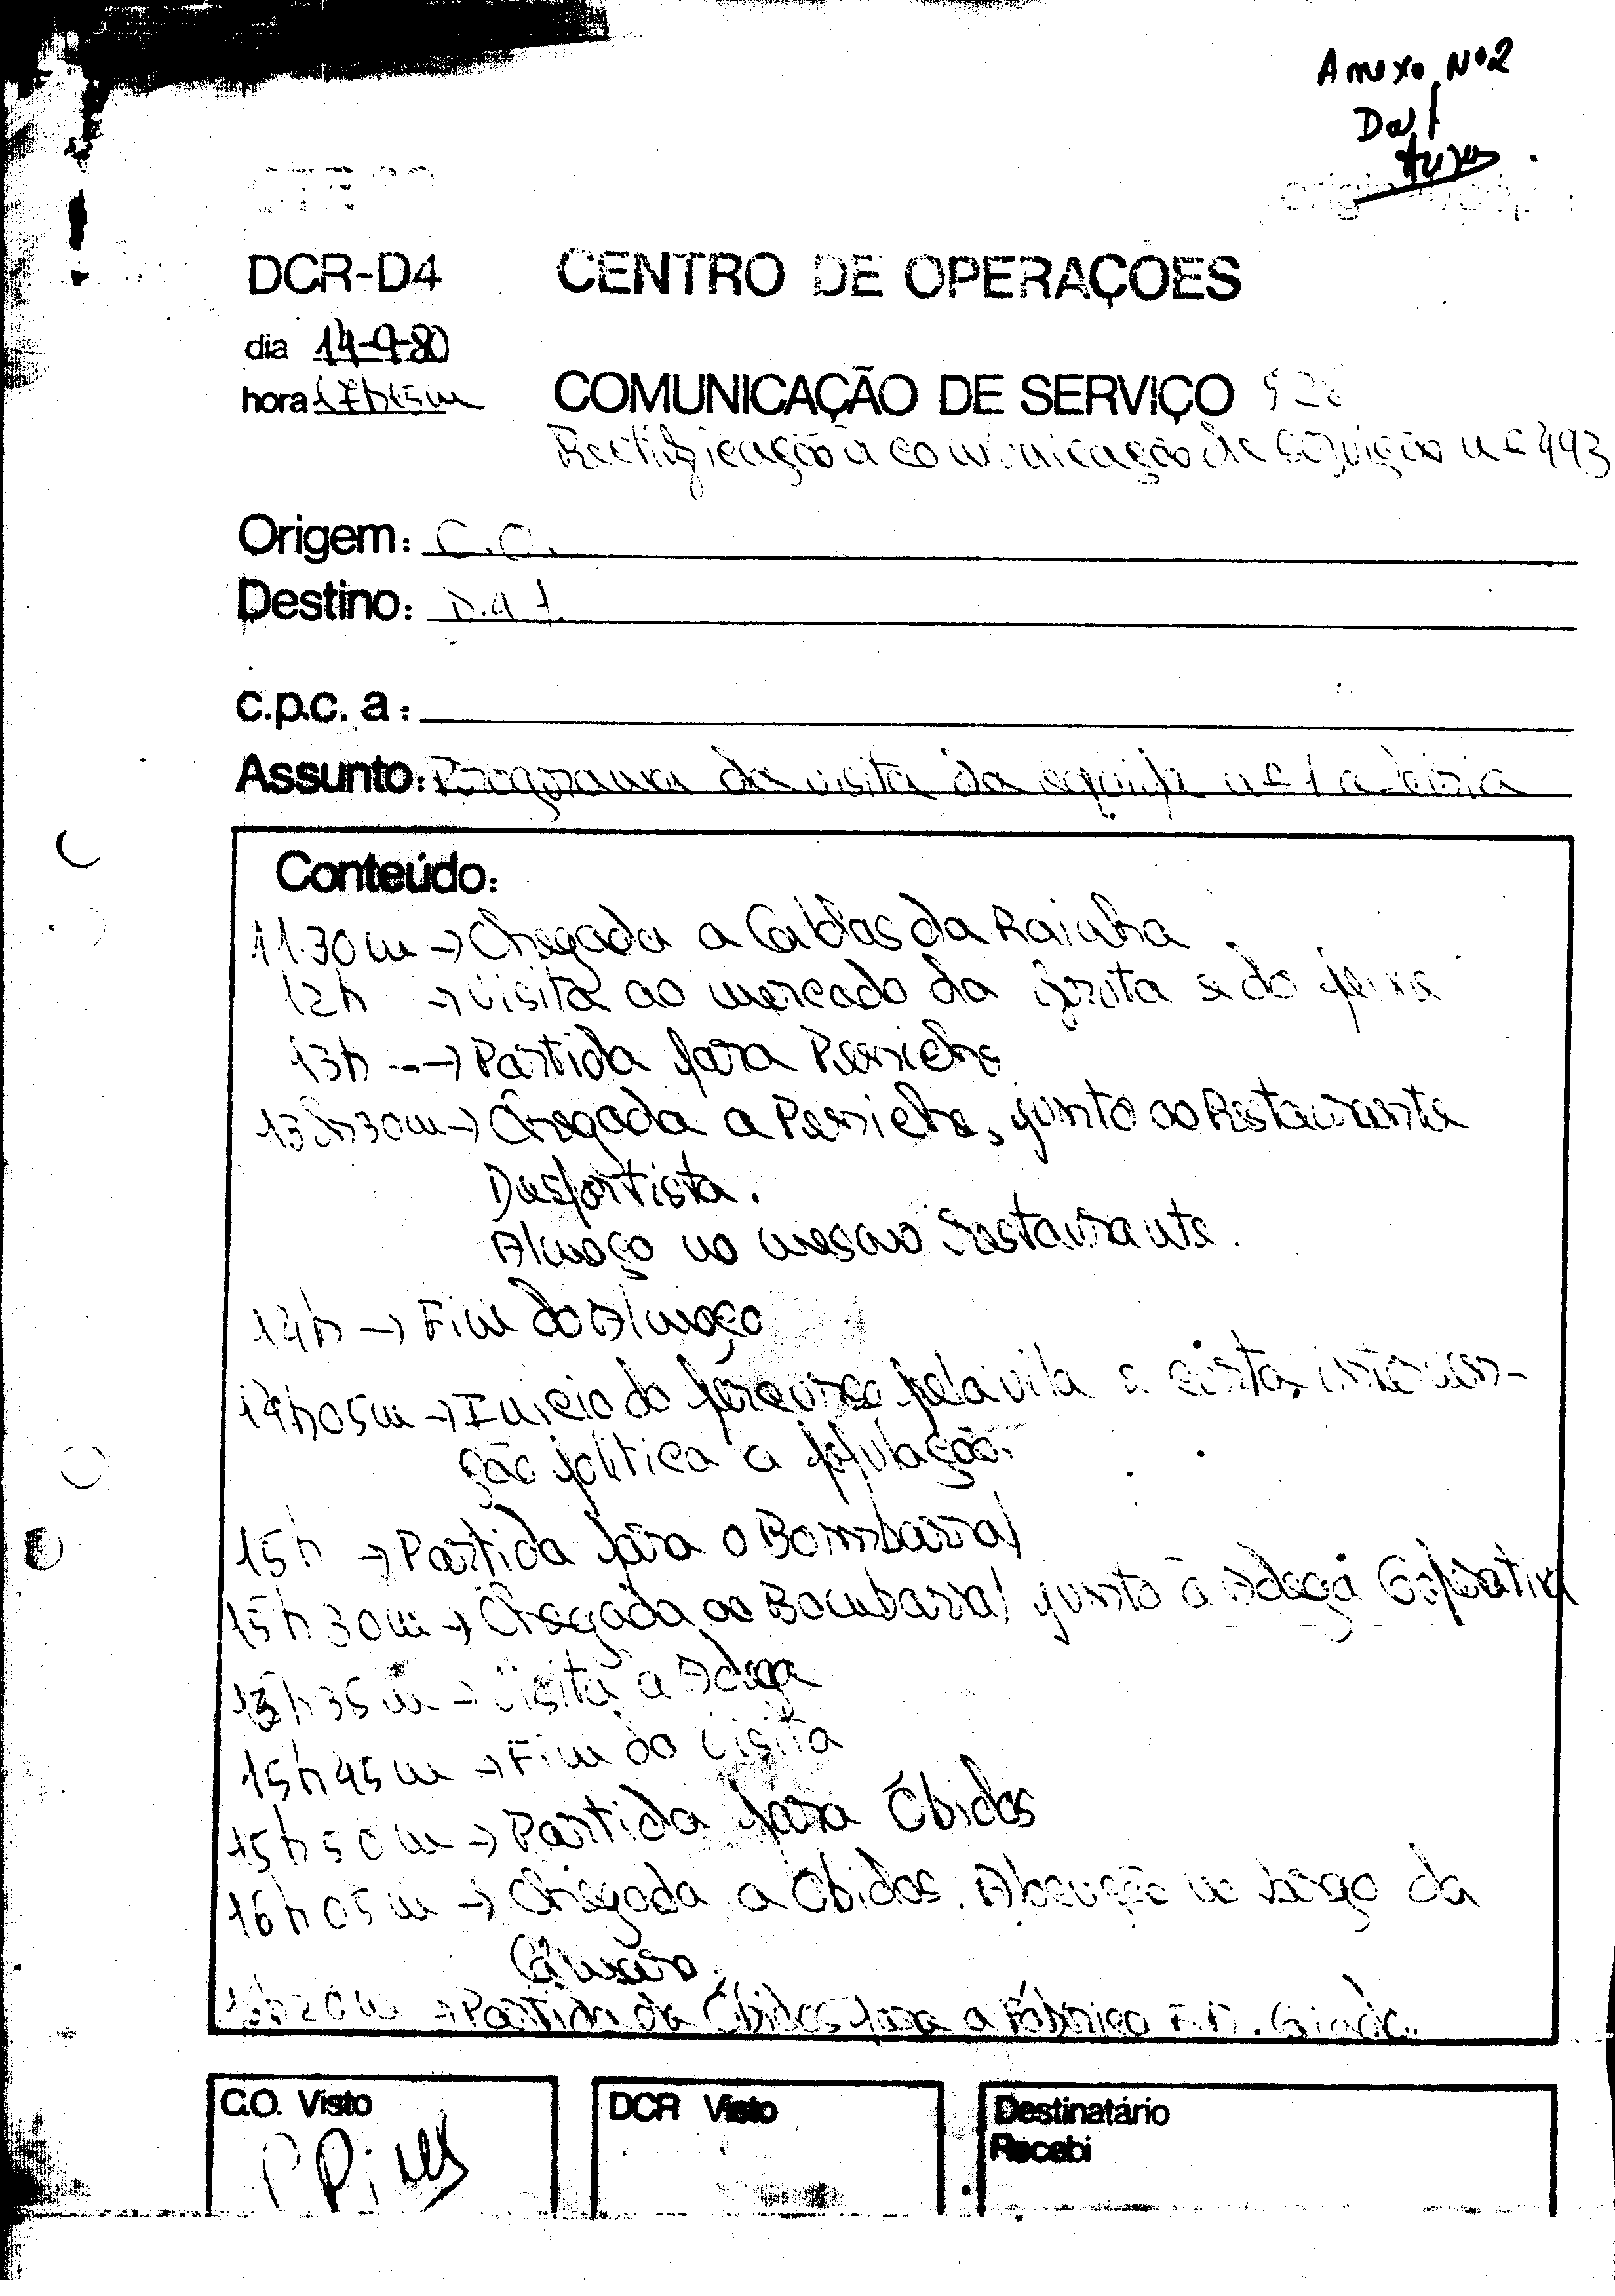 Anexo Nº2
DCR-D4 CENTRO DE OPERAÇOES
dia 14-9-80
hora 17h15m COMUNICAÇÃO DE SERVIÇO
Rectificação à comunicação de serviço nº 493
Origem: C.O.
Destino: D.a 1.
c.p.c. a:
Assunto: Programa da visita da equipa nº 1 a Leiria
Conteúdo:
11.30m → Chegada a Caldas da Rainha
12h → Visita ao mercado da fruta e do peixe
13h → Partida para Peniche
13h30m → Chegada a Peniche, junto ao Restaurante
Desportista.
Almoço no mesmo restaurante.
14h → Fim do Almoço
14h05m → Inicio do percurso pela vila e
ção política à população.
15h → Partida para o Bombarral
15h30m → Chegada ao Bombarral junto à Adega
15h35m → Visita à Adega
15h45m → Fim da Visita
15h50m → Partida para Óbidos
16h05m → Chegada a Óbidos. Alocução no largo da
Câmara.
→ Partida de Óbidos para a Fábrica
C.O. Visto DCR Visto Destinatário
Recebi